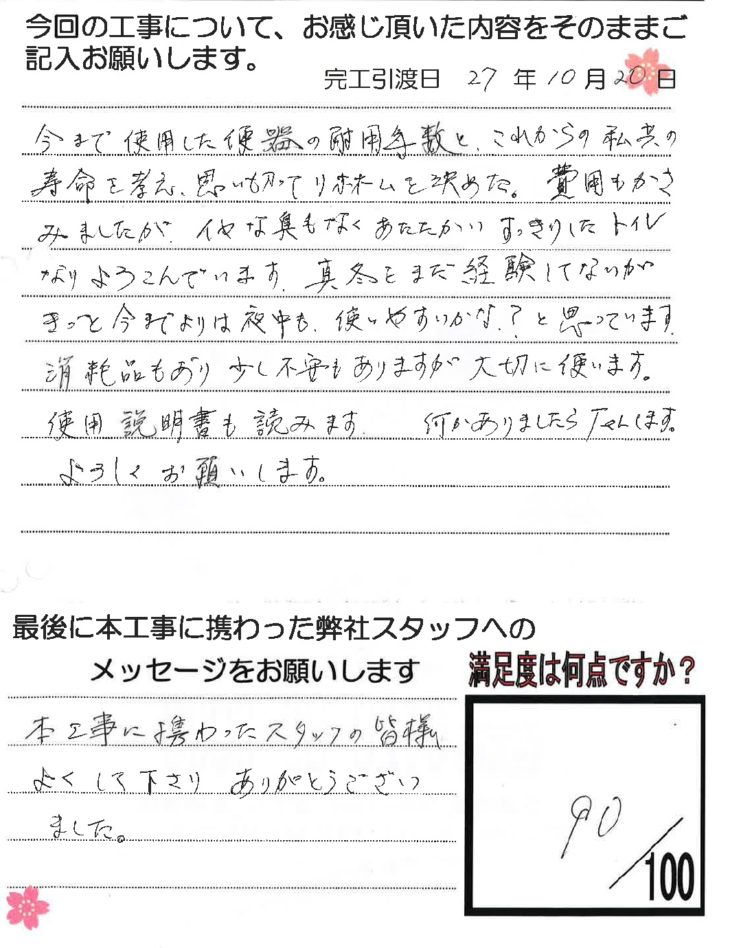 今回の工事について、お感じ頂いた内容をそのままご
記入お願いします。
完工引渡日 27年10月20日
今まで使用した便器の耐用年数と、これからの私共の
寿命を考え、思い切ってリホームを決めた。費用もかさ
みましたが、イヤな臭もなくあたたかい すっきりしたトイレ
なりよろこんでいます。真冬をまだ経験してないが
きっと今までよりは夜中も、使いやすいかな?と思っています
消耗品もあり少し不安もありますが大切に使います。
使用説明書も読みます。 何かありましたらTелします。
よろしくお願いします。
最後に本工事に携わった弊社スタッフへの
メッセージをお願いします
満足度は何点ですか?
本工事に携わったスタッフの皆様
よくして下さり ありがとうござい
ました。
90/100